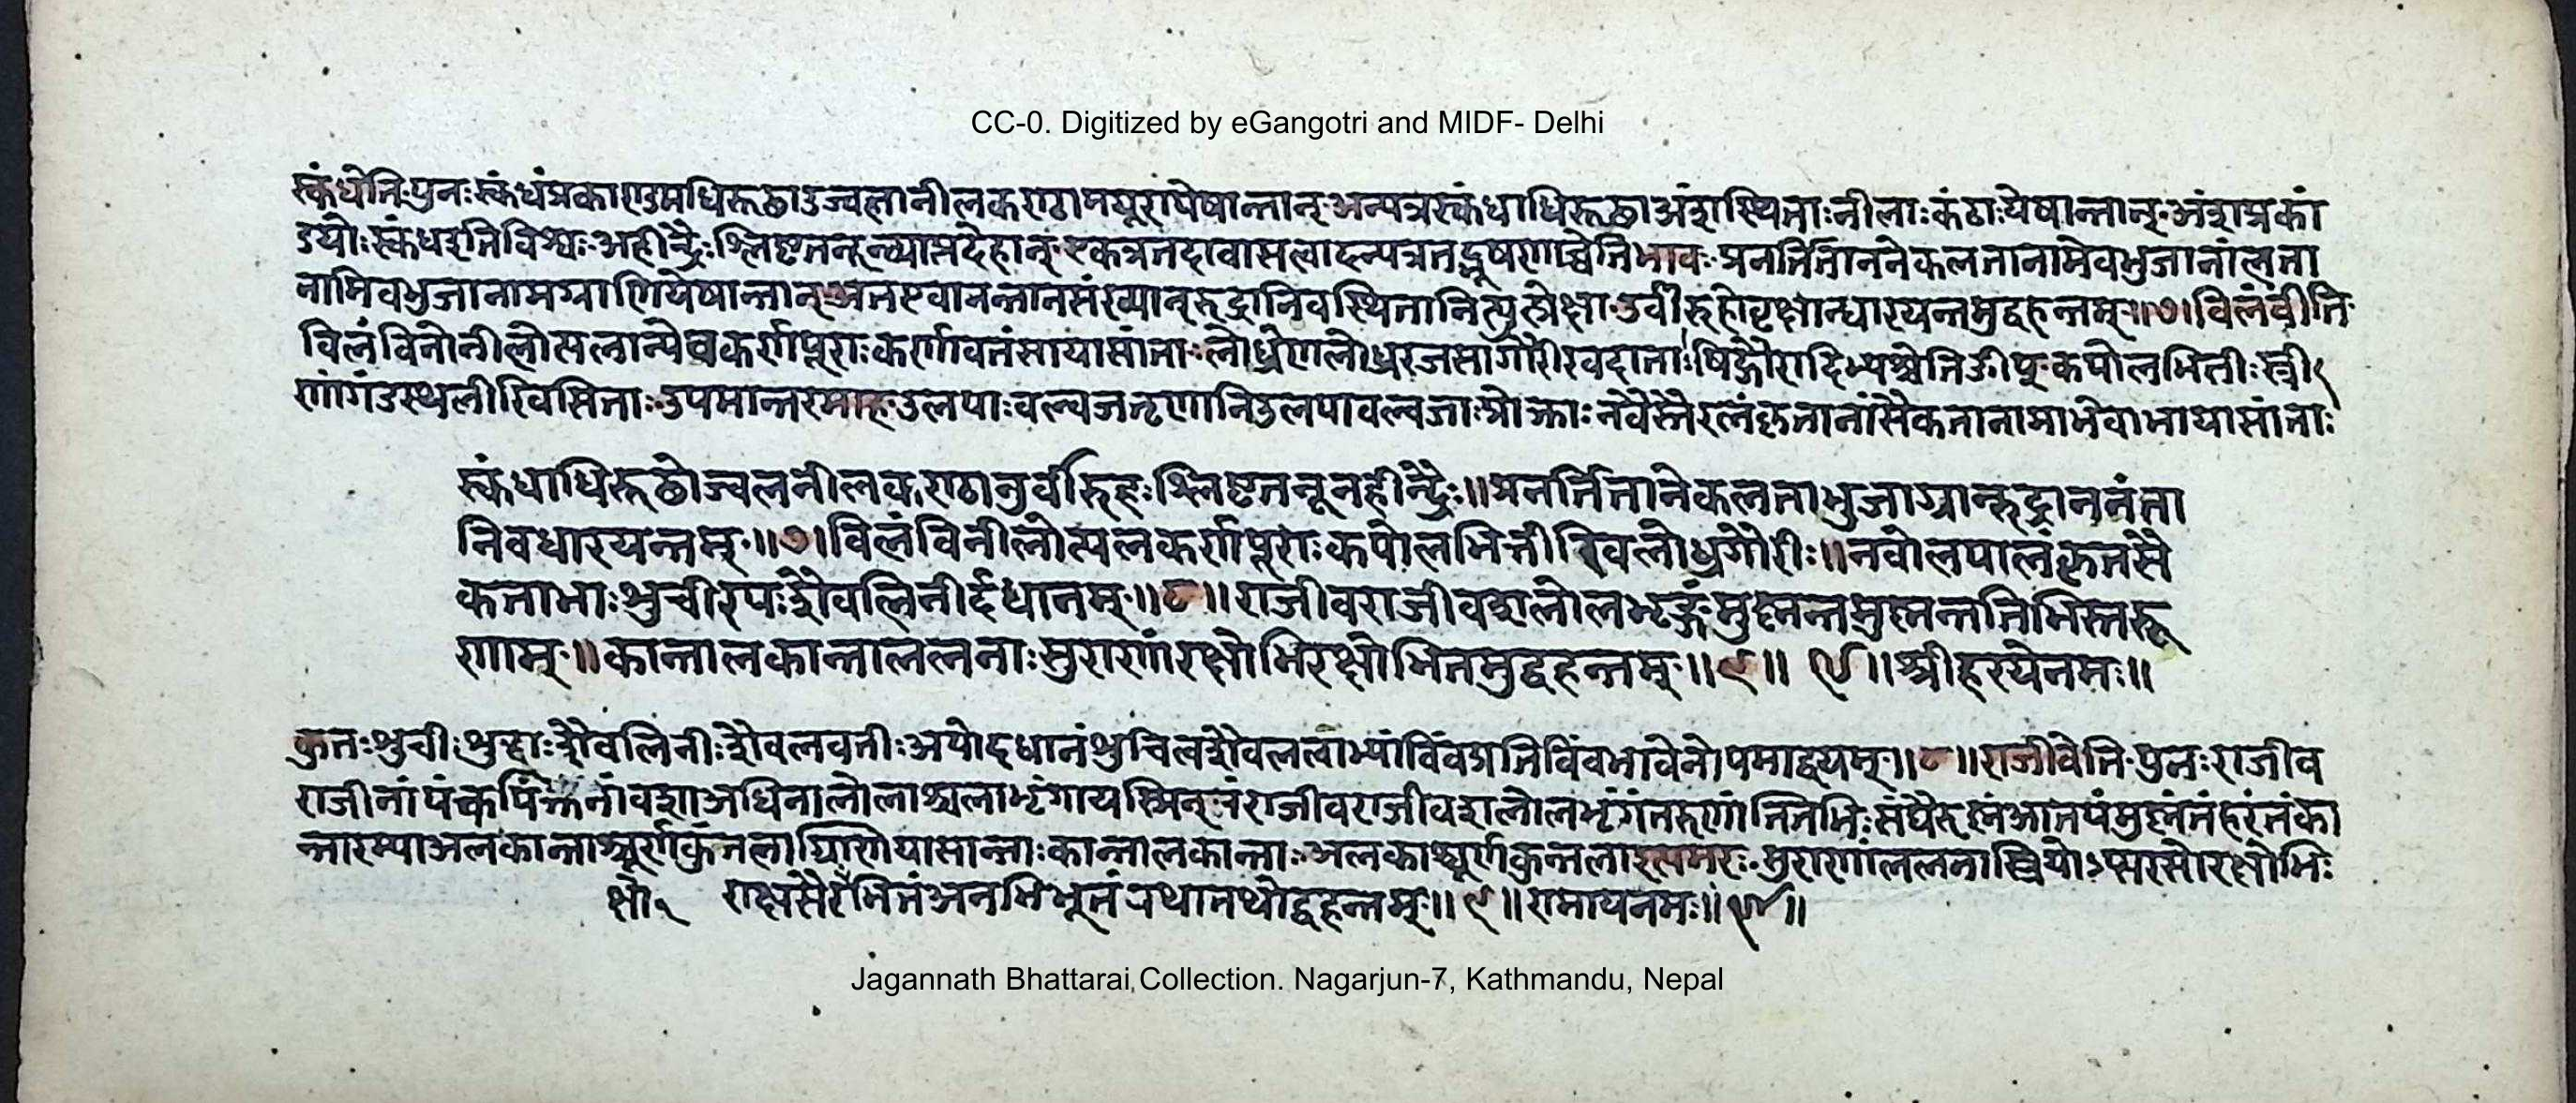 CC-0. Digitized by eGangotri and MIDF- Delhi
स्कंधेति पुनः स्कंधंप्रकाण्डमधिरूढाउज्वलानीलकण्ठामयूरायेषान्तान् अन्यत्रस्कंधाधिरूढाअंशस्थिताःनीलाःकंठाःयेषान्तान् अंशप्रकां
डयोःस्कंधइतिविश्वः अहीन्द्रैःश्लिष्टतनून्व्याप्तदेहान् एकत्रतदावासत्वादन्यत्रतद्भूषणाच्चेतिभावः प्रनर्तितानेकलतानामेवभुजानांलता
नामिवभुजानामग्राणियेषान्तान् अतएवानन्तानसंख्यान्रुद्रानिवस्थितानित्युत्प्रेक्षा उर्वीरुहोवृक्षान्धारयन्तमुद्वहन्तम् ॥७॥ विलंबीति
विलंविनोनीलोत्पलान्येवकर्णपूराःकर्णावतंसायासांताः लोध्रेणलोध्ररजसागौरीरवदाताः षिद्गौरादिभ्यश्चेतिङीष् कपोलभित्तीःस्त्री
णांगंडस्थलीरिवसिताः उपमान्तरमाह उलपाःवल्वजतृणानिउलपावल्वजाःप्रोक्ताः नवैस्तैरलंकृतानांसैकतानामाभेवाभायासांताः
स्कंधाधिरूढोज्वलनीलकण्ठानुर्वीरुहःश्लिष्टतनूनहीन्द्रैः॥प्रनर्तितानेकलताभुजाग्रान्रुद्राननंता
निवधारयन्तम् ॥७॥विलंविनीलोत्पलकर्णपूराःकपोलभित्तीरिवलोध्रगौरीः॥नवोलपालंकृतसै
कताभाःशुचीरपःशैवलिनीर्दधानम् ॥८॥राजीवराजीवशलोलभृङ्गंमुष्णन्तमुष्णन्ततिभिस्तरू
णाम् ॥कान्तालकान्ताललनाःसुराणांरक्षोभिरक्षोभितमुद्वहन्तम् ॥९॥ ९॥श्रीहरयेनमः॥
कृतःशुचीःशुद्धाःशैवलिनीःशैवलवतीःअपोदधानंशुचित्वशैवलत्वाभ्यांविंवप्रतिविंवभावेनोपमाद्वयम् ॥८॥राजीवेति पुनःराजीव
राजीनांपंकपंक्तीनांवशाअधिनालोलाश्चलाभृंगायस्मिन्तंराजीवराजीवशलोलभृंगंतरूणांततिभिःसंघैरुष्णंआतपंमुष्णंतंहरंतंका
न्तारम्याअलकान्ताश्चूर्णकुंतलाग्राणियासान्ताःकान्तालकान्ताः अलकाश्चूर्णकुन्तलाइत्यमरः सुराणांललनास्त्रियोऽप्सरसोरक्षोभिः
क्षो२ राक्षसैरभितंअनभिभूतं तथोद्वहन्तम् ॥९॥रामायनमः॥
Jagannath Bhattarai Collection. Nagarjun-7, Kathmandu, Nepal